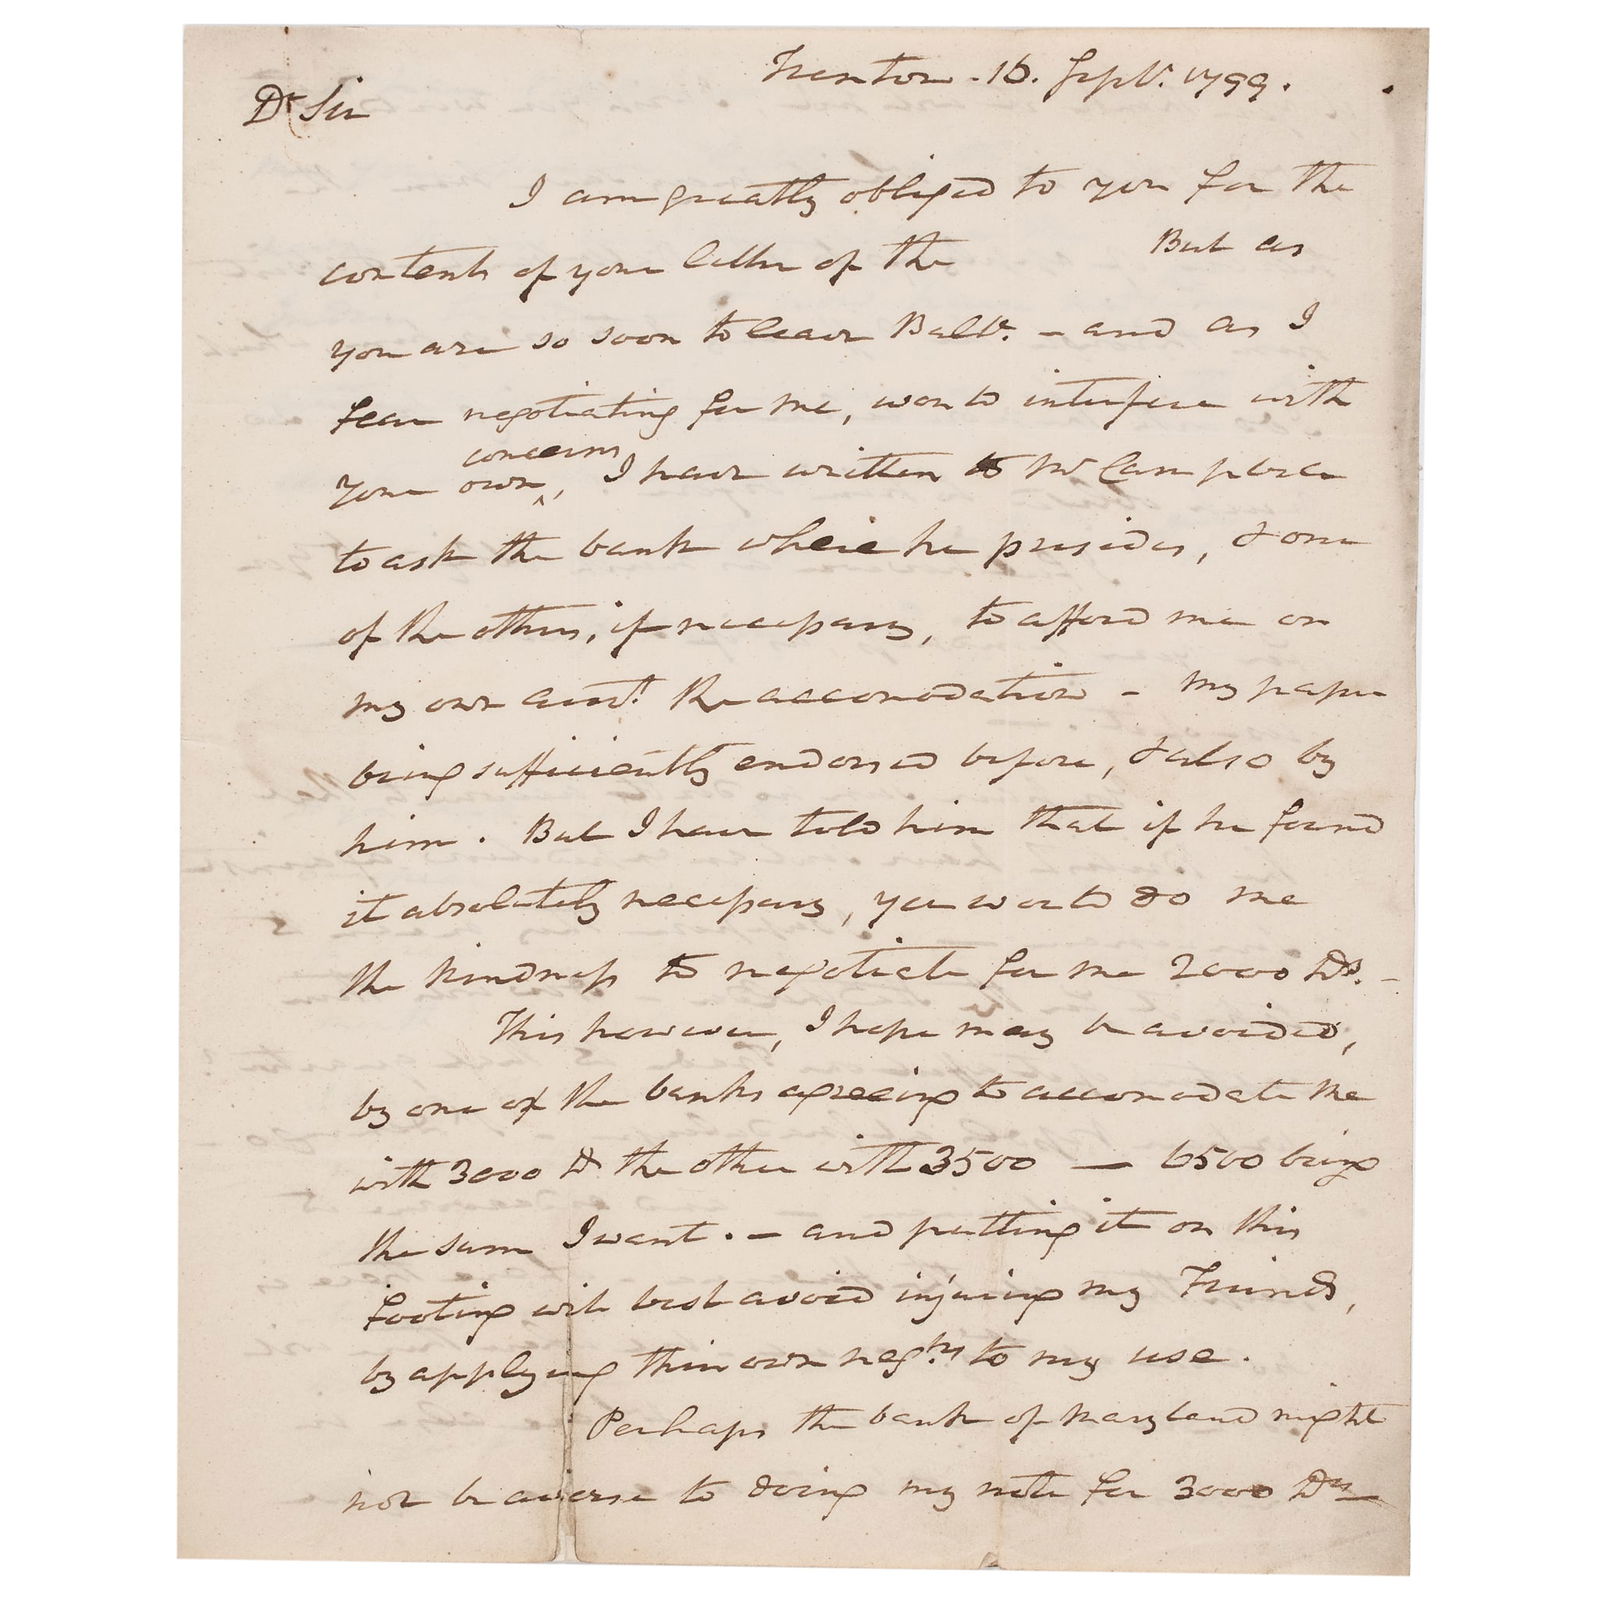 Trenton - 16. Sept. 1799.
Dr Sir
I am greatly obliged to you for the
contents of your letter of the But as
you are so soon to leave Balte. - and as I
fear negotiating for me, would interfere with
concerns
your own ^, I have written to Mr
to ask the bank where he presides, & one
of the others, if necessary, to afford me on
my own acct. the accomodation - my paper
being sufficiently endorsed before, & also by
him. But I have told him that if he found
it absolutely necessary, you would do me
the kindness to negotiate for me 2000 Ds. -
This however, I hope may be avoided,
by one of the banks agreeing to accomodate me
with 3000 & the other with 3500 — 6500 being
the sum I want. - and putting it on this
footing will best avoid injuring my Friends,
by applying their own to my use.
Perhaps the bank of Maryland might
not be averse to doing my note for 3000 Drs